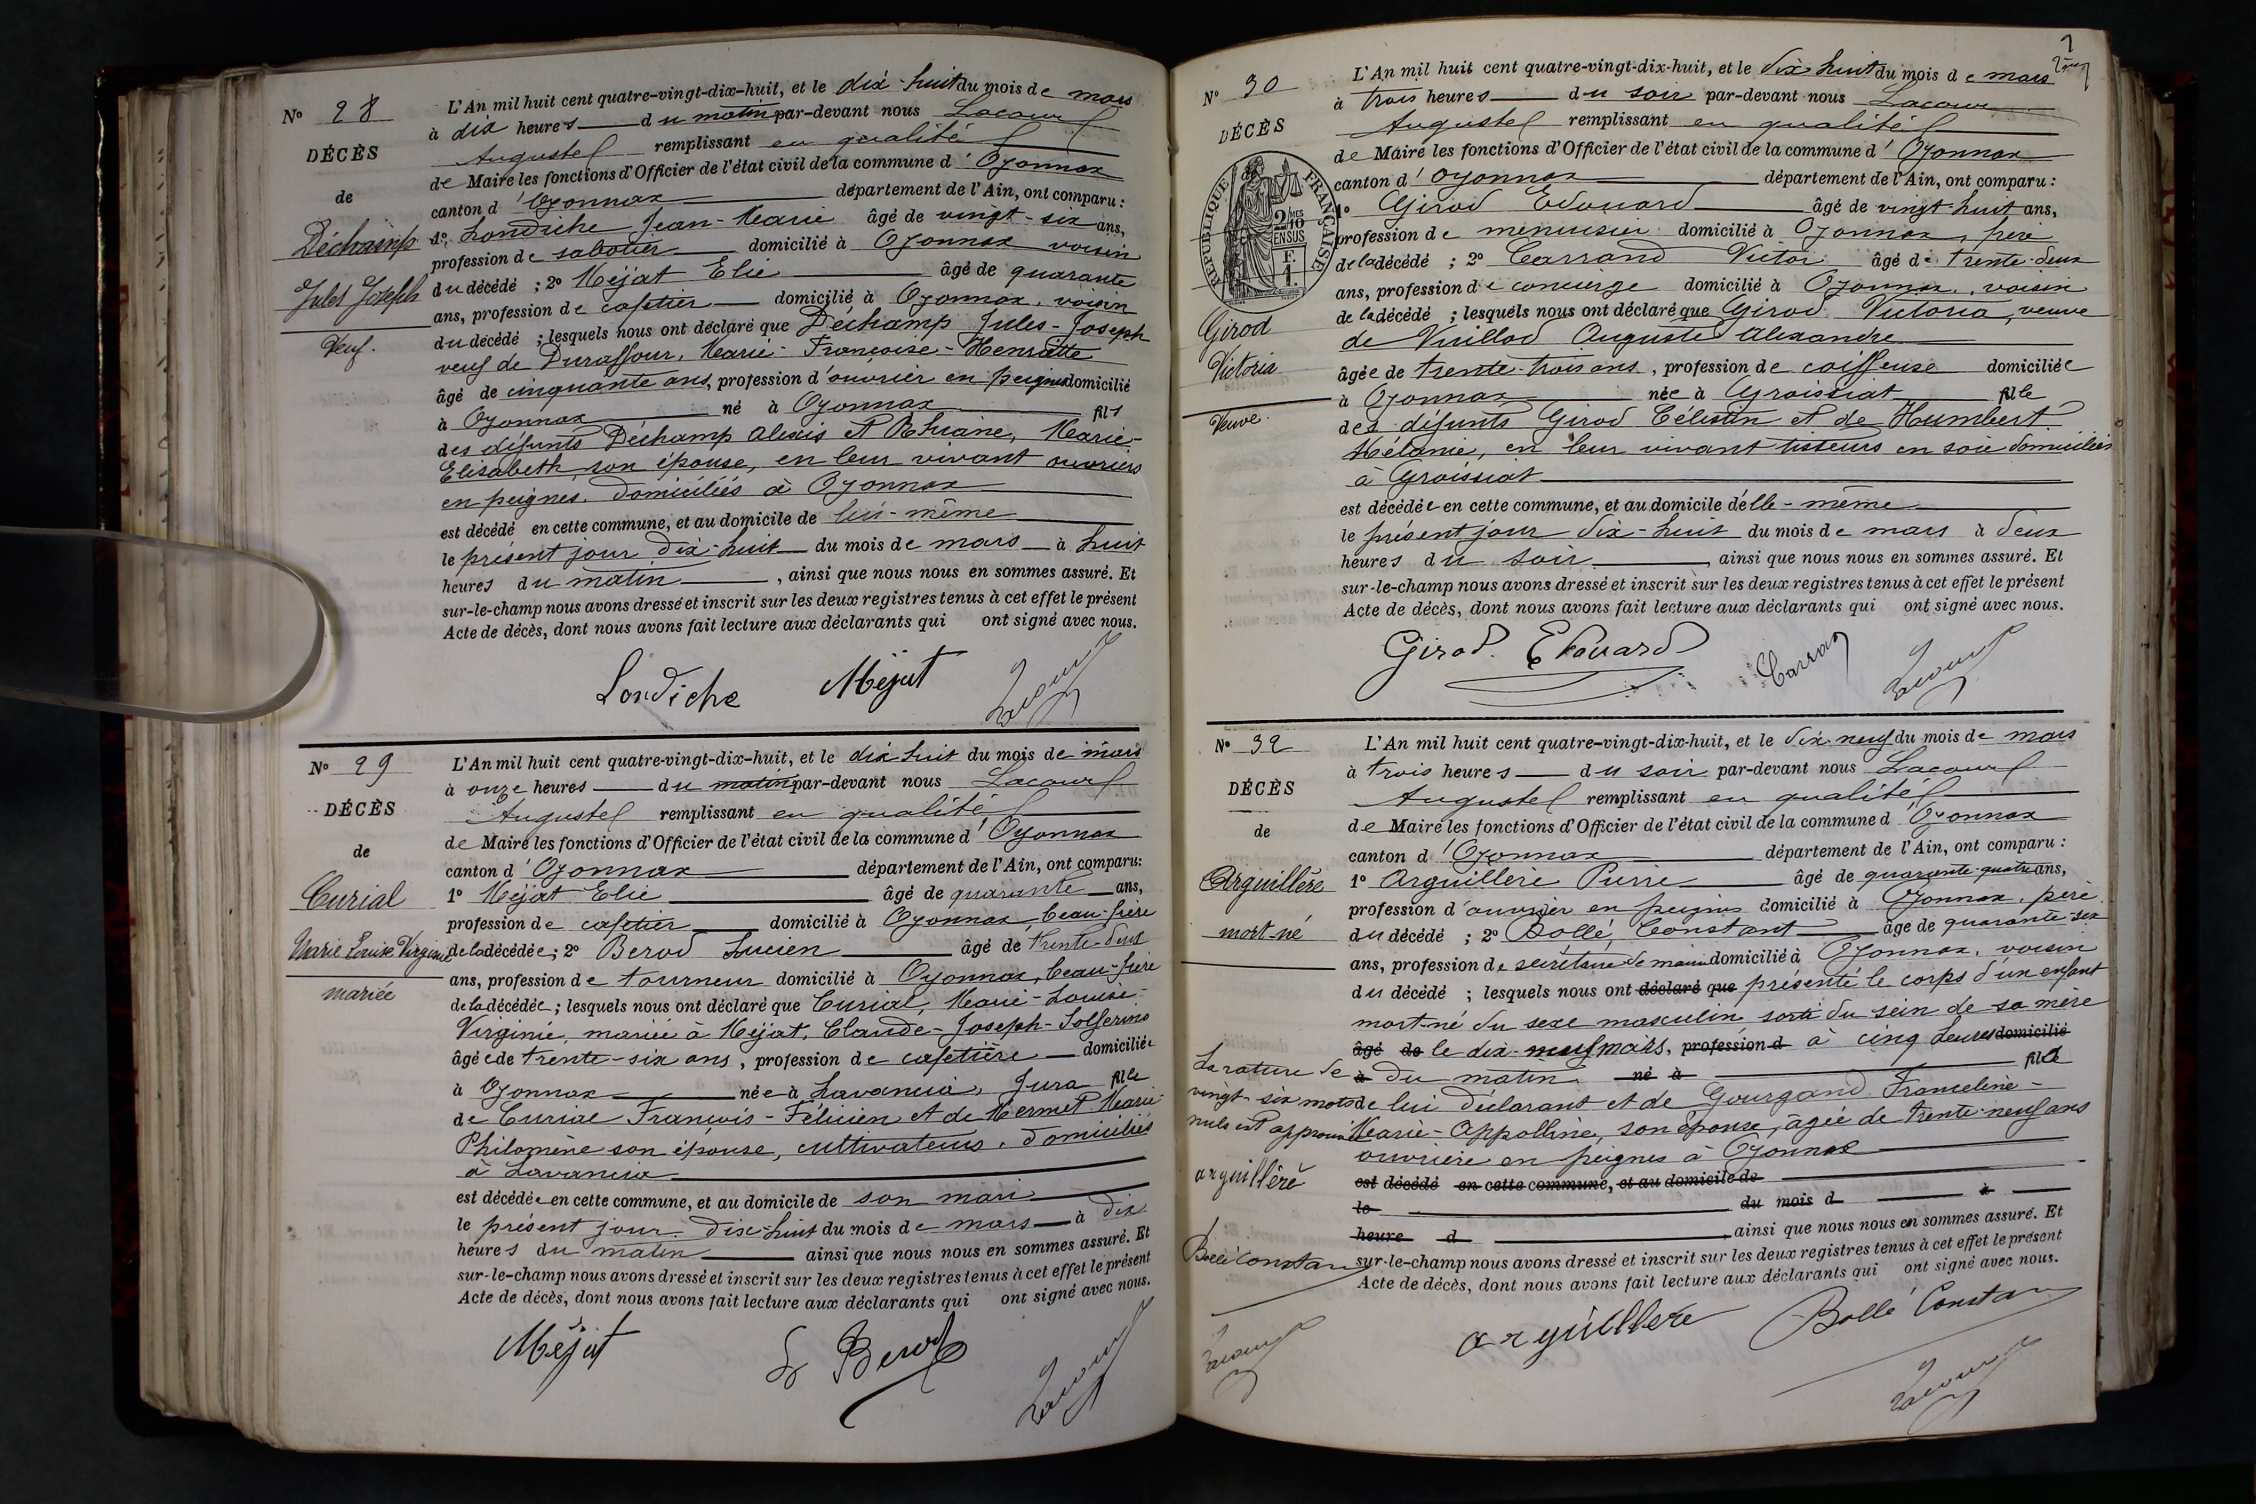 Nº 28
DÉCÈS
de
Déchamp
Jules Joseph
Veuf.
L'An mil huit cent quatre-vingt-dix-huit, et le dix-huit du mois de mars
à dix heures du matin par-devant nous Lacour
Auguste remplissant en qualité
de Maire les fonctions d'Officier de l'état civil de la commune d'Oyonnax
canton d'Oyonnax département de l'Ain, ont comparu :
1º Londiche Jean-Marie âgé de vingt-six ans,
profession de sabotier domicilié à Oyonnax voisin
du décédé ; 2º Méjat Elie âgé de quarante
ans, profession de cafetier domicilié à Oyonnax, voisin
du décédé ; lesquels nous ont déclaré que Déchamp Jules-Joseph
veuf de Duraffour, Marie-Françoise-Henriette
âgé de cinquante ans, profession d'ouvrier en peignes domicilié
à Oyonnax né à Oyonnax fils
des défunts Déchamp Alexis et Rhiane, Marie-
Elisabeth, son épouse, en leur vivant ouvriers
en peignes, domiciliés à Oyonnax
est décédé en cette commune, et au domicile de lui-même
le présent jour dix-huit du mois de mars à huit
heures du matin, ainsi que nous nous en sommes assuré. Et
sur-le-champ nous avons dressé et inscrit sur les deux registres tenus à cet effet le présent
Acte de décès, dont nous avons fait lecture aux déclarants qui ont signé avec nous.
Londiche Méjat Lacour
Nº 29
DÉCÈS
de
Curial
Marie Louise Virginie
mariée
L'An mil huit cent quatre-vingt-dix-huit, et le dix huit du mois de mars
à onze heures du matin par-devant nous Lacour
Auguste remplissant en qualité
de Maire les fonctions d'Officier de l'état civil de la commune d'Oyonnax
canton d'Oyonnax département de l'Ain, ont comparu:
1º Méjat Elie âgé de quarante ans,
profession de cafetier domicilié à Oyonnax, beau-frère
de la décédée; 2º Berod Lucien âgé de trente-deux
ans, profession de tourneur domicilié à Oyonnax, beau-frère
de la décédée ; lesquels nous ont déclaré que Curial, Marie-Louise-
Virginie, mariée à Méjat, Claude-Joseph-Solferino
âgée de trente-six ans, profession de cafetière domiciliée
à Oyonnax née à Lavancia, Jura fille
de Curial François-Félicien et de Mermet Marie-
Philomène son épouse, cultivateurs, domiciliés
à Lavancia
est décédée en cette commune, et au domicile de son mari
le présent jour. Dix-huit du mois de mars à dix
heures du matin ainsi que nous nous en sommes assuré. Et
sur-le-champ nous avons dressé et inscrit sur les deux registres tenus à cet effet le présent
Acte de décès, dont nous avons fait lecture aux déclarants qui ont signé avec nous.
Méjat L Berod Lacour
Nº 30
DÉCÈS
RÉPUBLIQUE FRANÇAISE
2/10 EN SUS
F. 1.
Girod
Victoria
Veuve.
L'An mil huit cent quatre-vingt-dix-huit, et le dix huit du mois de mars
à trois heures du soir par-devant nous Lacour
Auguste remplissant en qualité
de Maire les fonctions d'Officier de l'état civil de la commune d'Oyonnax
canton d'Oyonnax département de l'Ain, ont comparu :
1º Girod Edouard âgé de vingt-huit ans,
profession de menuisier domicilié à Oyonnax, frère
de la décédé ; 2º Carrand Victor âgé de trente-deux
ans, profession de concierge domicilié à Oyonnax, voisin
de la décédé ; lesquels nous ont déclaré que Girod Victoria, veuve
de Vuillod Auguste Alexandre
âgée de trente-trois ans, profession de coiffeuse domiciliée
à Oyonnax née à Groissiat fille
des défunts Girod Célestin et de Humbert
Mélanie, en leur vivant tisseurs en soie domiciliés
à Groissiat
est décédée en cette commune, et au domicile d'elle-même
le présent jour dix-huit du mois de mars à deux
heures du soir, ainsi que nous nous en sommes assuré. Et
sur-le-champ nous avons dressé et inscrit sur les deux registres tenus à cet effet le présent
Acte de décès, dont nous avons fait lecture aux déclarants qui ont signé avec nous.
Girod Edouard Carran Lacour
Nº 32
DÉCÈS
de
Arguillère
mort-né
L'An mil huit cent quatre-vingt-dix-huit, et le dix-neuf du mois de mars
à trois heures du soir par-devant nous Lacour
Auguste remplissant en qualité
de Maire les fonctions d'Officier de l'état civil de la commune d'Oyonnax
canton d'Oyonnax département de l'Ain, ont comparu :
1º Arguillère Pierre âgé de quarante-quatre ans,
profession d'ouvrier en peignes domicilié à Oyonnax, père
du décédé ; 2º Bollé, Constant âgé de quarante-six
ans, profession de secrétaire de mairie domicilié à Oyonnax, voisin
du décédé ; lesquels nous ont déclaré que présenté le corps d'un enfant
mort-né du sexe masculin sorti du sein de sa mère
âgé de le dix-neuf mars, profession d à cinq heures domicilié
à du matin né à fils
de lui déclarant et de Gourgand Franceline-
Marie-Appolline, son épouse, âgée de trente-neuf ans
ouvrière en peignes à Oyonnax
est décédé en cette commune, et au domicile de
le du mois d à
heure d, ainsi que nous nous en sommes assuré. Et
sur-le-champ nous avons dressé et inscrit sur les deux registres tenus à cet effet le présent
Acte de décès, dont nous avons fait lecture aux déclarants qui ont signé avec nous.
La rature de
vingt-six mots
nuls est approuvée
arguillère
Bollé Constan
Lacour
arguillere Bollé Constan
Lacour